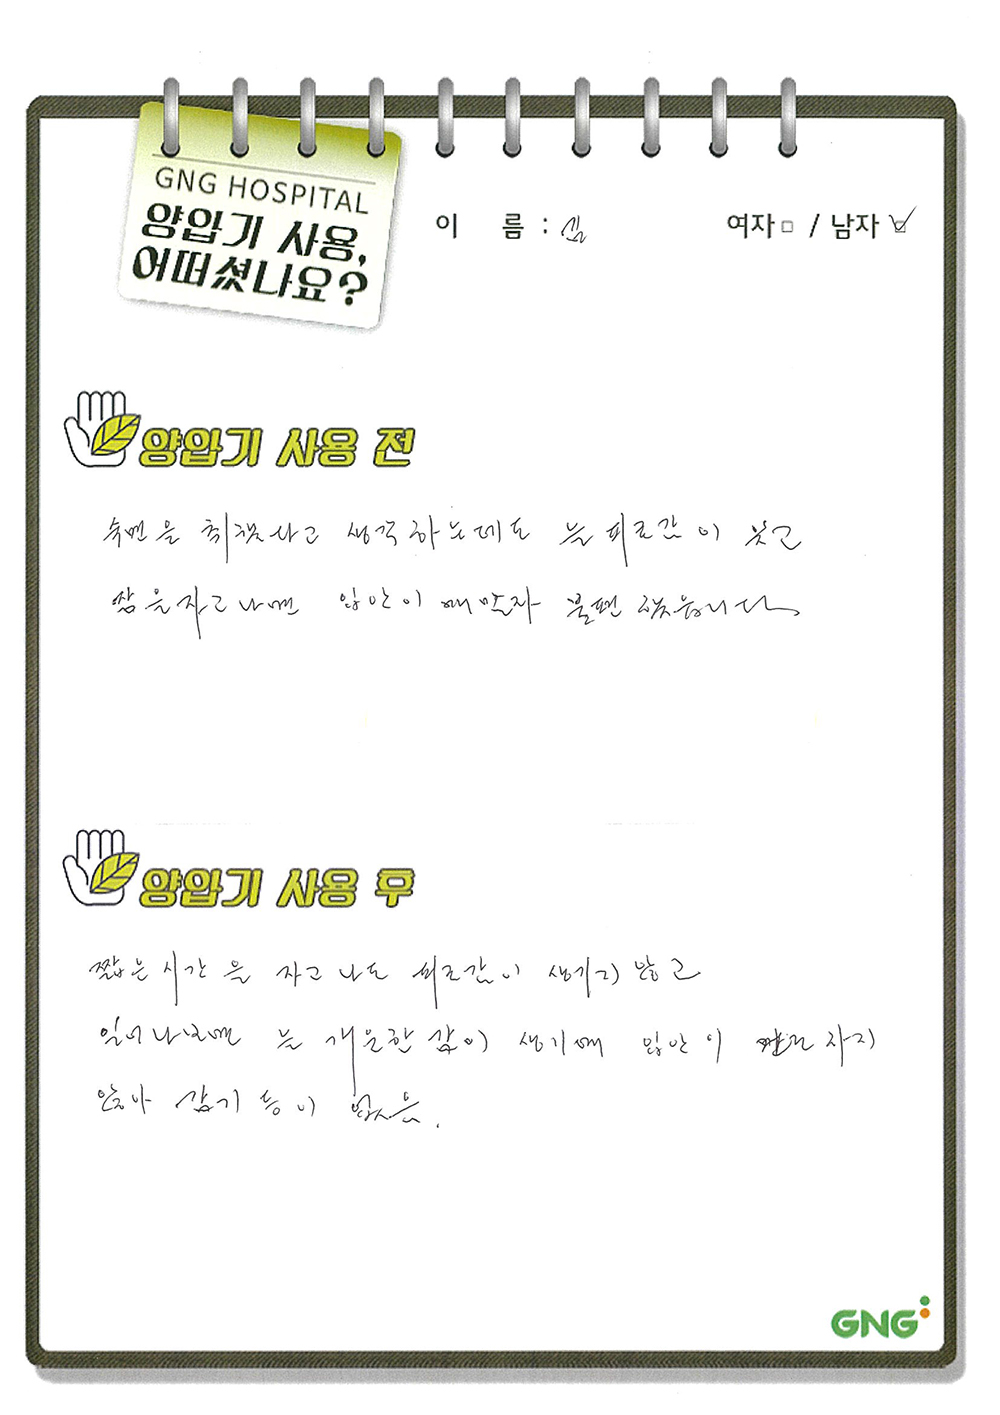 GNG HOSPITAL
양압기 사용,
어떠셨나요?
이 름 : 심
여자□ / 남자☑
양압기 사용 전
숙면을 취했다고 생각하는데도 늘 피로감이 있고
잠을자고나면 입안이 메말라 불편했습니다
양압기 사용 후
짧은시간을 자고나도 피로감이 생기지 않고
일어나보면 늘 개운한 감이 생기며 입안이 마르지
않아 감기 등이 없음.
GNG